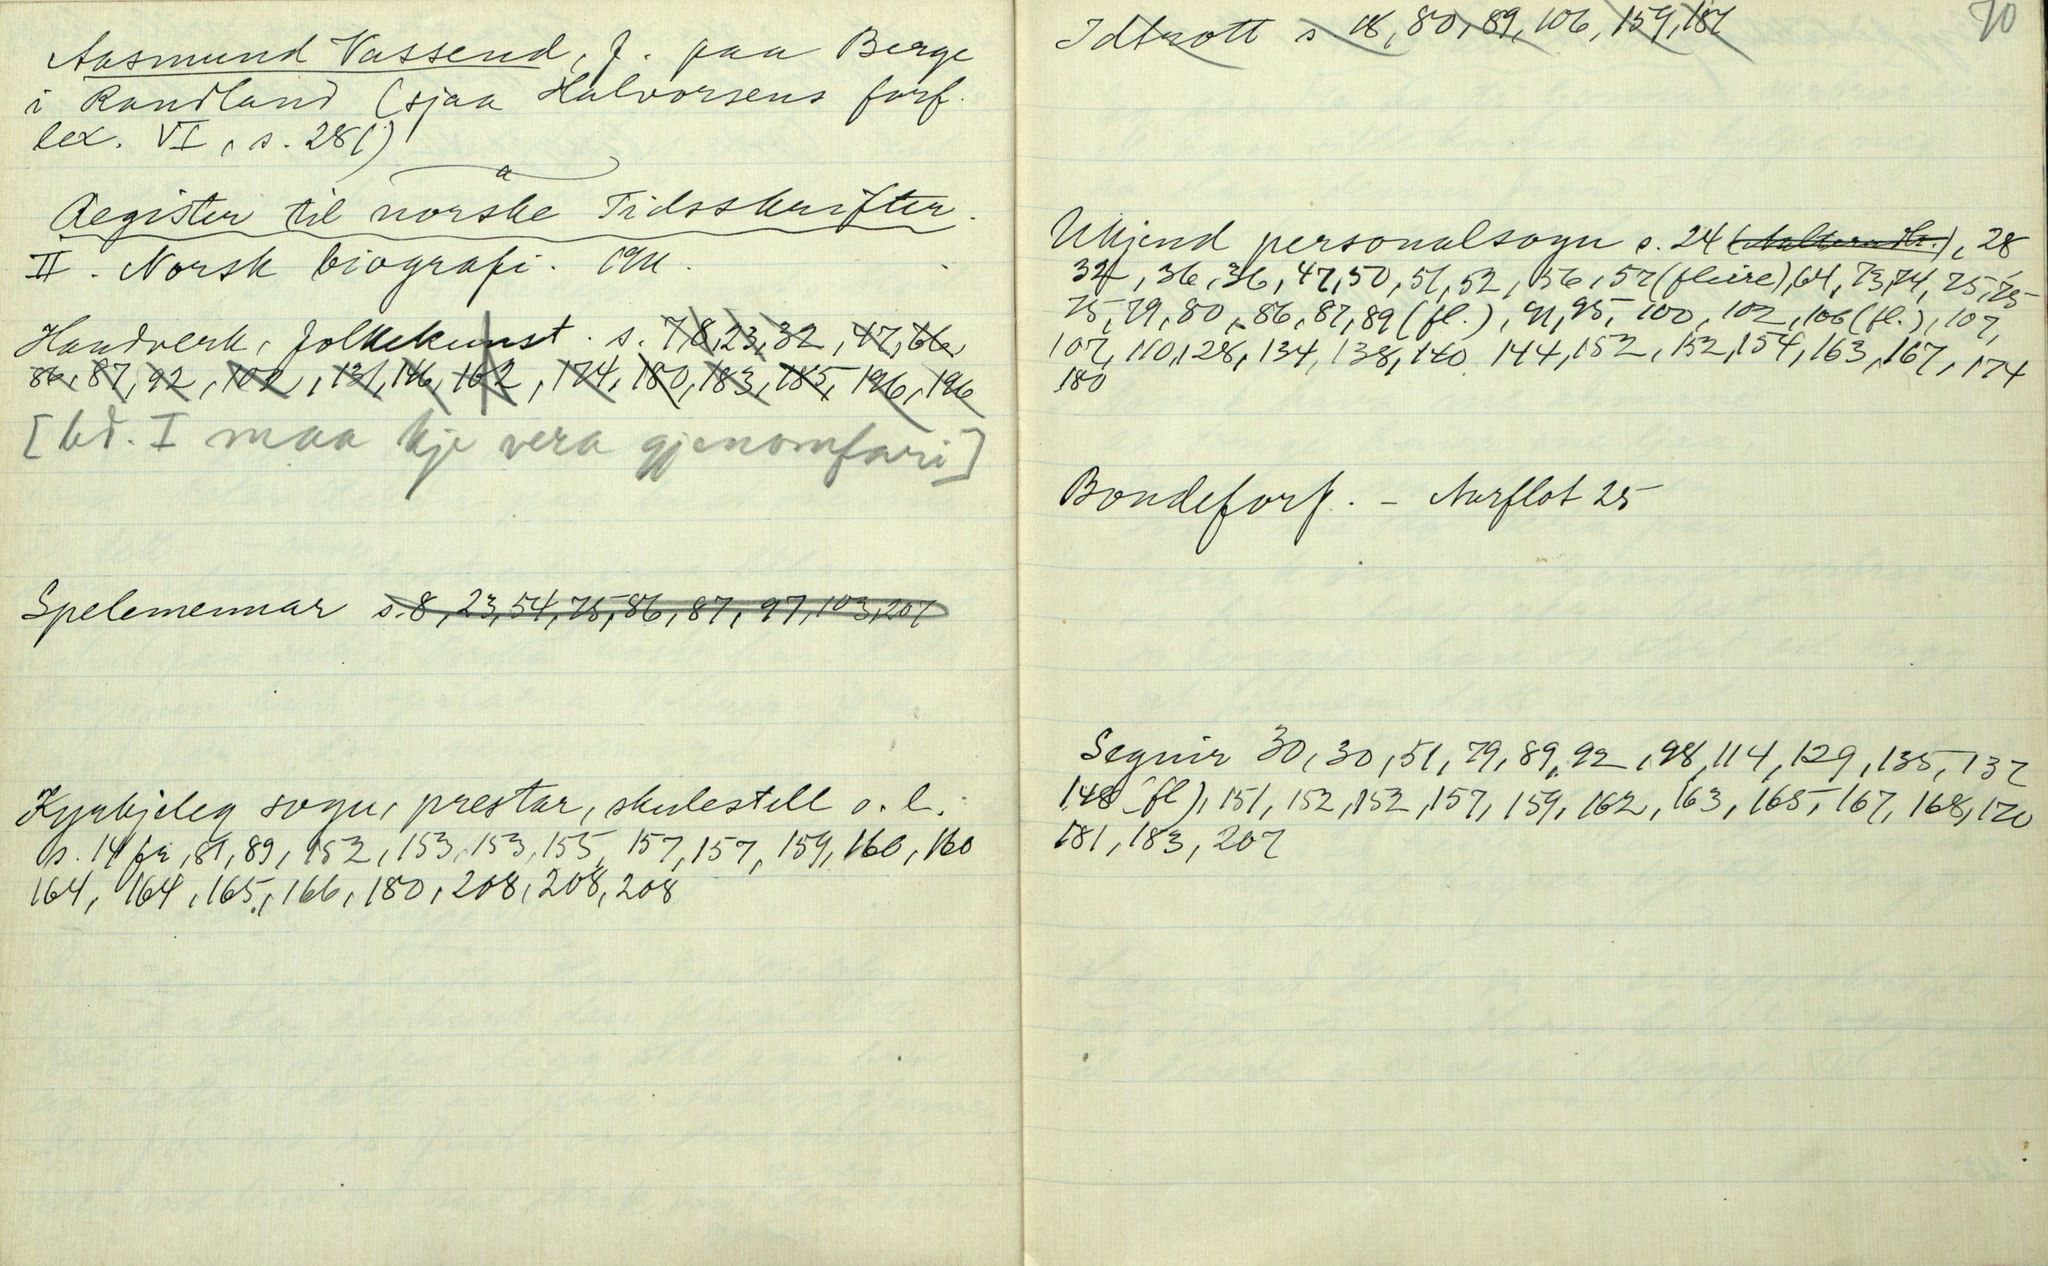 Aasmund Vassend, f. paa Berge
i Randland (sjaa Halvorsens forf.
lex. VI, s. 281)
Register til norske Tidsskrifter.
II. Norsk biografi. 1911.
Handverk, folkekunst. s. 7,8,23,32,47,66,
86,87,92,102,131,146,162,174,180,183,185,196,196
[bd. I maa kje vera gjenomfari]
Spelemennar s.8,23,54,75,86,87,97,103,207
Kyrkjeleg sogu, prestar, skulestell o. l.
s. 14 fr, 81,89,152,153,153,155,157,157,159,160,160
164,164,165,166,180,208,208,208
70
Idtrott s. 18,80,89,106,159,187
Ukjend personalsogu s. 24, 28
32,36,36,47,50,51,52,56,57(fleire),64,73,74,75,75
75,79,80,86,87,89(fl.),91,95,100,102,106(fl.),107,
107,110,128,134,138,140,144,152,152,154,163,167,174
180
Bondeforf. - Aarflot 25
Segnir 30,30,51,79,89,92,98,114,129,135,137
148(fl),151,152,152,157,159,162,163,165,167,168,170
181,183,207